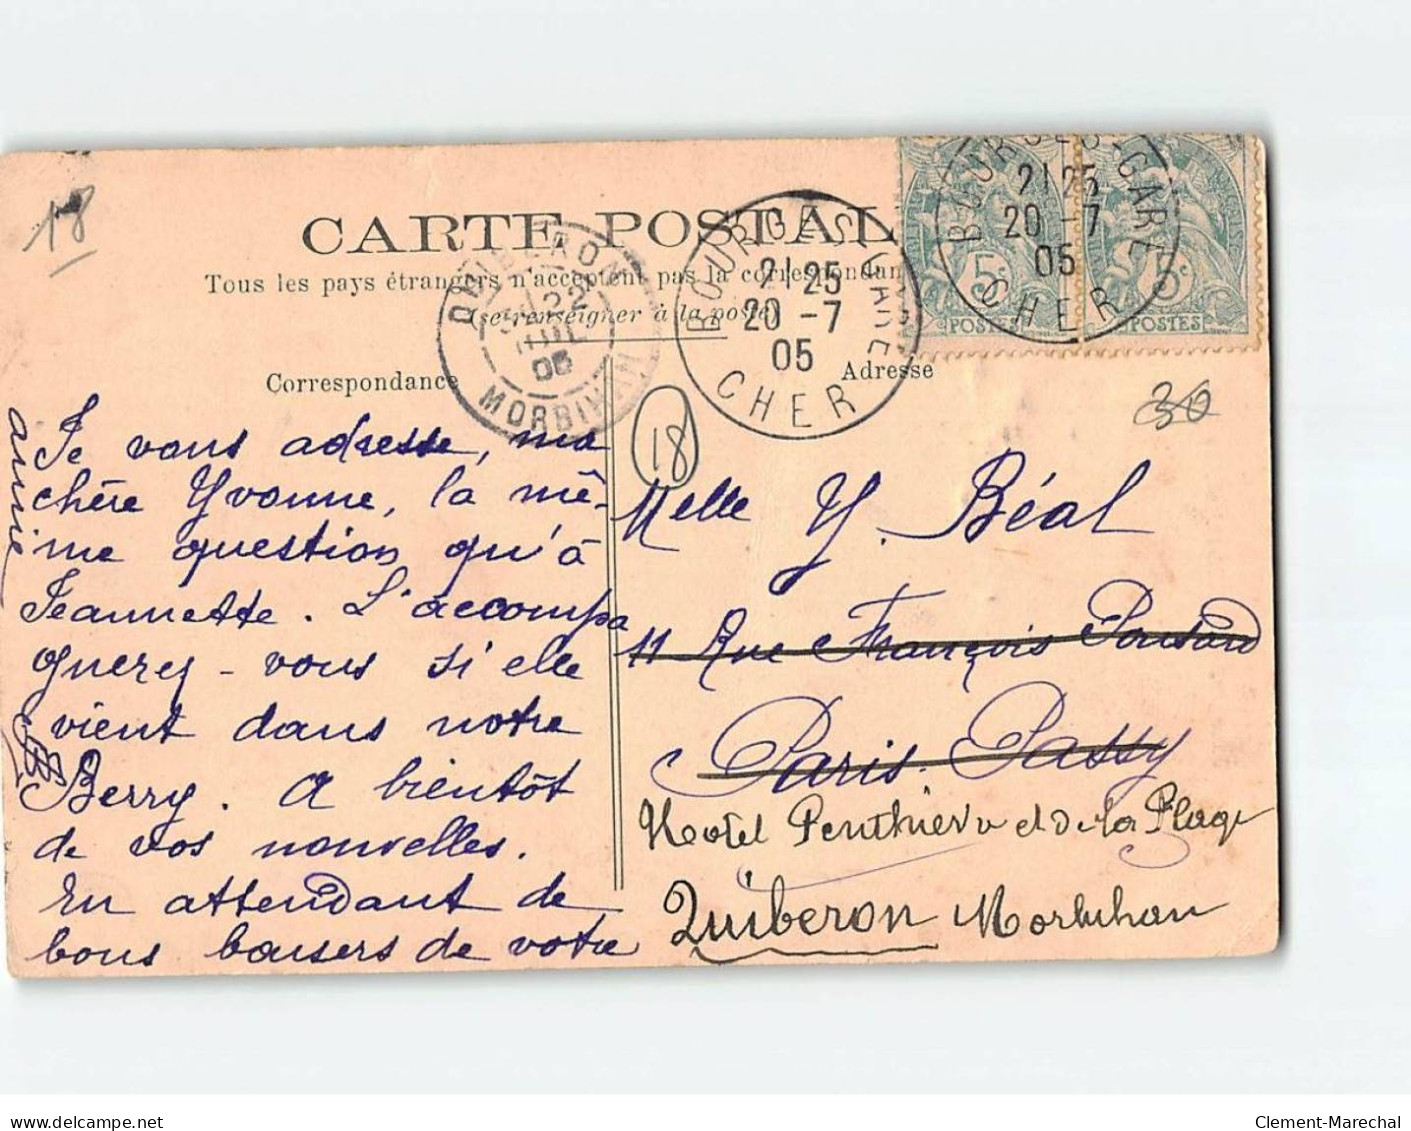 18
CARTE POSTALE
Tous les pays étrangers n'acceptent pas la correspondan
(se renseigner à la poste)
Correspondance
Adresse
QUIBERON
22
JUIL
05
MORBIHAN
BOURGES-GARE
21 25
20 -7
05
CHER
BOURGES-GARE
21 25
20 -7
05
CHER
5c
POSTES
5c
POSTES
30
18
Je vous adresse, ma
chère Yvonne, la mê-
me question qu'à
Jeannette. L'accompa
gnerez-vous si elle
vient dans notre
Berry. A bientôt
de vos nouvelles.
En attendant de
bons baisers de votre
amie
Melle Y. Béal
11 Rue François Ponsard
Paris. Passy
Hotel Penthièvre et de la Plage
Quiberon Morbihan
delcampe.net
Clement-Marechal